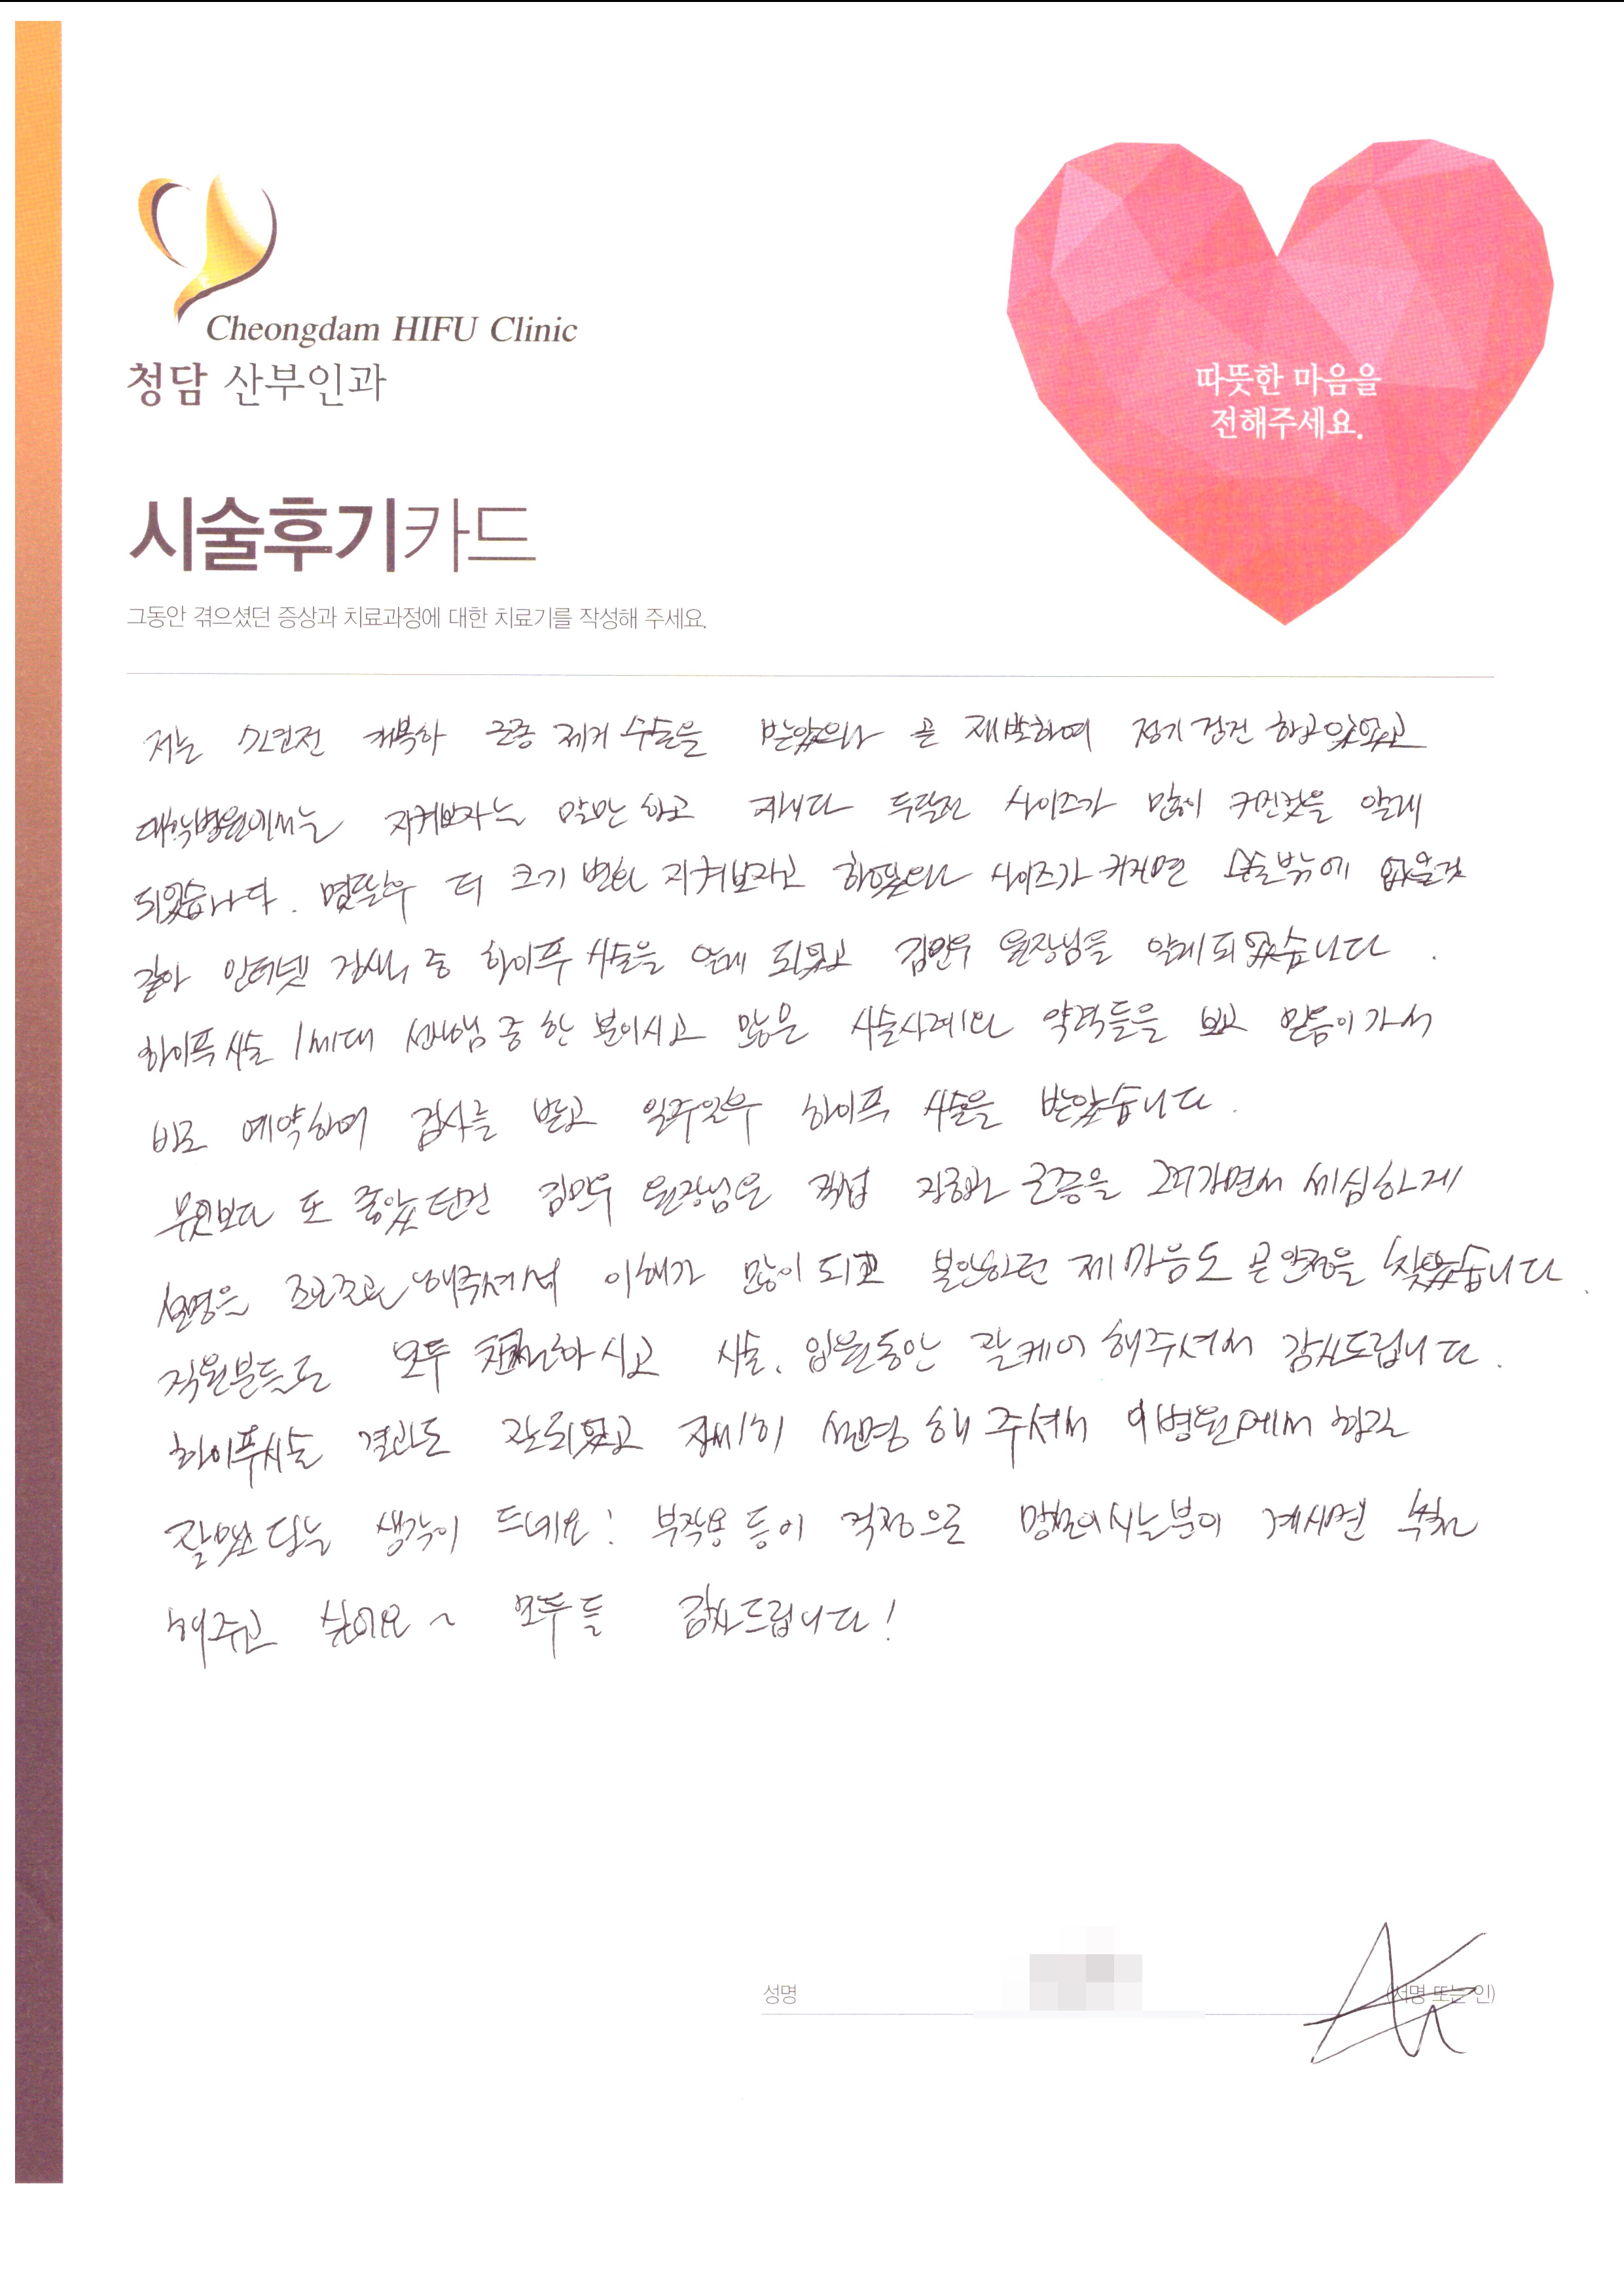 Cheongdam HIFU Clinic
청담 산부인과
따뜻한 마음을
전해주세요.
시술후기카드
그동안 겪으셨던 증상과 치료과정에 대한 치료기를 작성해 주세요.
저는 년전 개복하 근종 제거 수술을 받았으나 곧 재발하여 정기 검진 하고있었고
대학병원에서는 지켜보자는 말만 하고 지내다 두달전 사이즈가 많이 커진것을 알게
되었습니다. 몇달후 더 크기 변화 지켜보자고 하였으나 사이즈가 커지면 수술밖에 없을것
같아 인터넷 검색 중 하이푸 시술을 알게 되었고 김민우 원장님을 알게되었습니다.
하이푸시술 1세대 선생님 중 한 분이시고 많은 시술사례와 약력들을 보고 믿음이가서
바로 예약하여 검사를 받고 일주일후 하이푸 시술을 받았습니다.
무엇보다 또 좋았던건 김민우 원장님은 직접 자궁과 근종을 그려가면서 세심하게
설명을 조근조근 해주셔서 이해가 많이 되고 불안하던 제마음도 곧 안정을 찾았습니다.
직원분들도 모두 친절하시고 시술, 입원동안 잘케어 해주셔서 감사드립니다.
하이푸시술 결과도 잘되었고 자세히 설명 해 주셔서 이병원에서 하길
잘했다는 생각이 드네요! 부작용 등이 걱정으로 망설이시는분이 계시면 추천
해주고 싶어요~ 모두들 감사드립니다!
성명
(서명 또는 인)